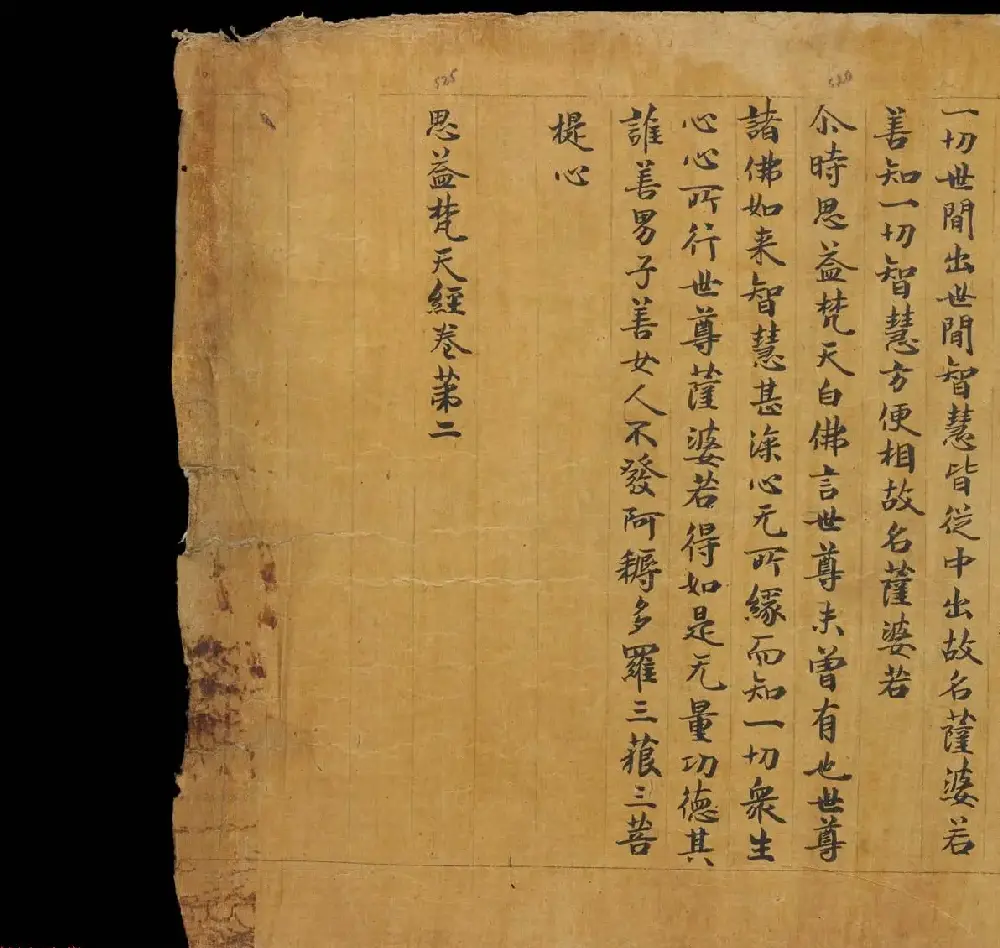 一切世間出世間智慧皆從中出故名薩婆若
善知一切智慧方便相故名薩婆若
尒時思益梵天白佛言世尊未曾有也世尊
諸佛如来智慧甚深心无所緣而知一切衆生
心心所行世尊薩婆若得如是无量功德其
誰善男子善女人不發阿耨多羅三藐三菩
提心
思益梵天經卷第二
520
525